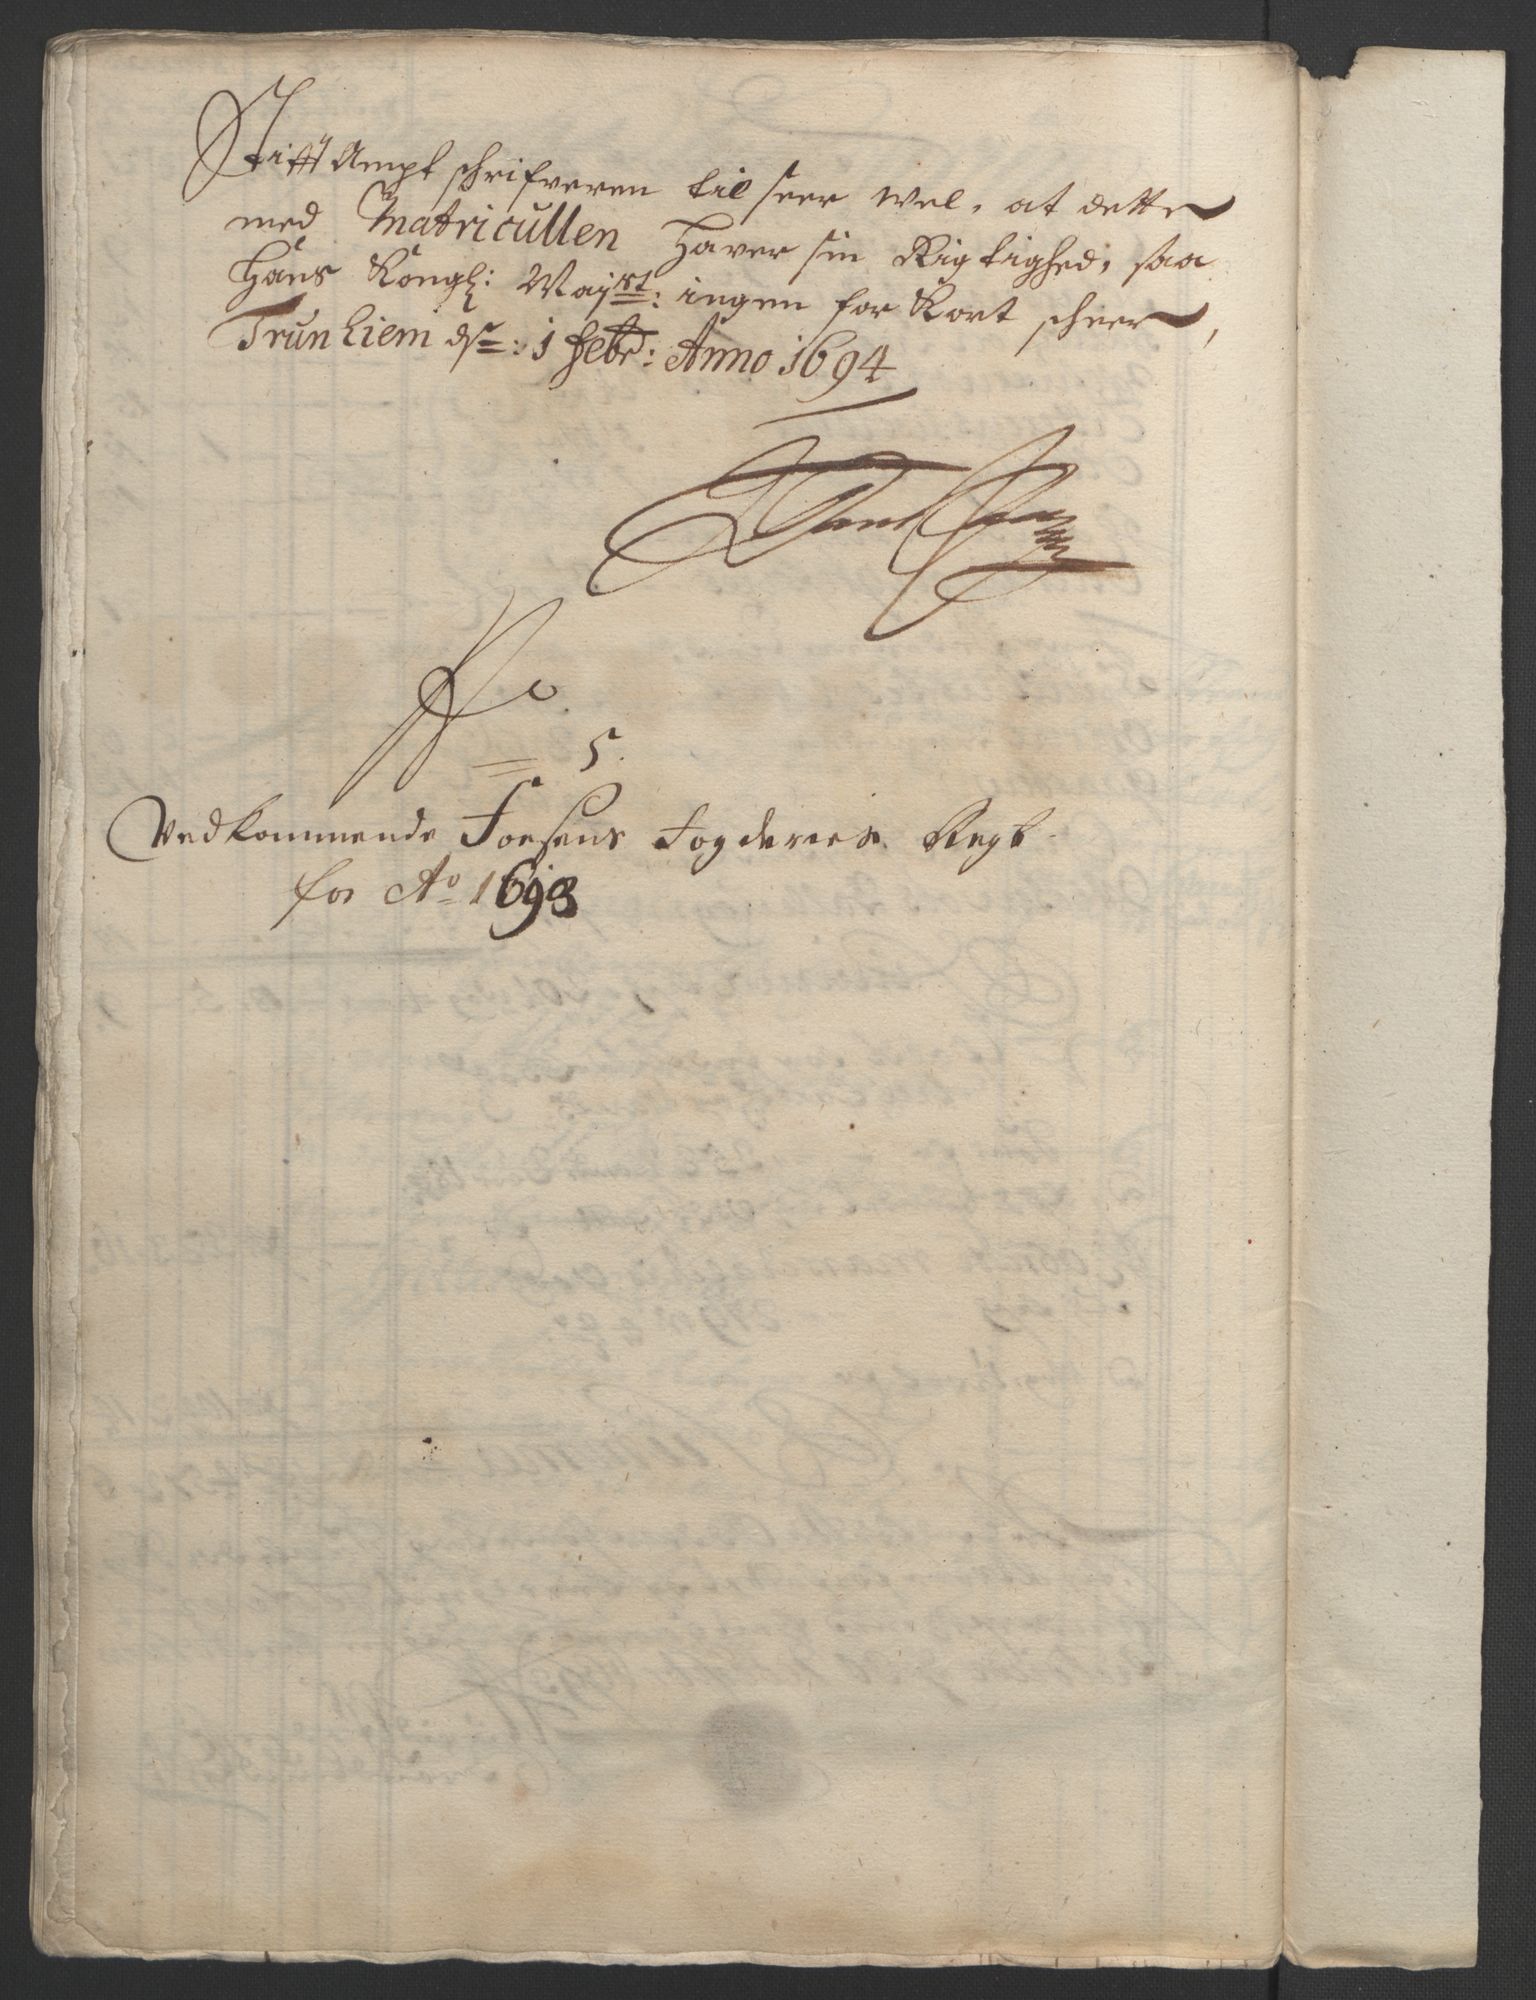 Stifft Ampt schrifveren til seer vel, at dette
med Matricullen haver sin Rigtighed, saa
Hans Kongl: Mayst: ingen for Kort scheer,
Trunhiem ds: 1 Febr: Anno 1694
No
5.
Vedkommende Foesens fogderies Regb
for Ao 1693